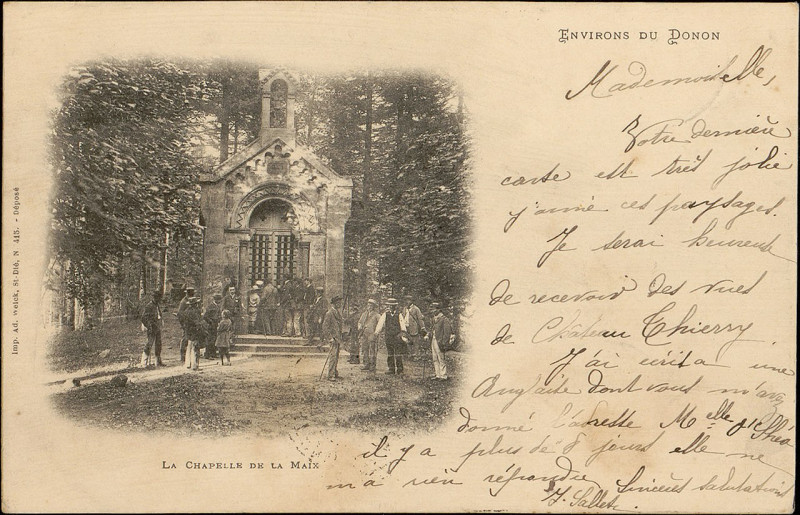 ENVIRONS DU DONON
Mademoiselle,
Votre dernière
carte est très jolie
j'aime ces paysages.
Je serai heureuse
de recevoir des vues
de Château Thierry
J'ai écrit a une
Anglaise dont vous m'avez
donné l'adresse Melle
il y a plus de 8 jours elle ne
m'a rien répondu Sincères salutations
LA CHAPELLE DE LA MAIX
Imp. Ad. Weick, St-Dié, N 415. - Déposé